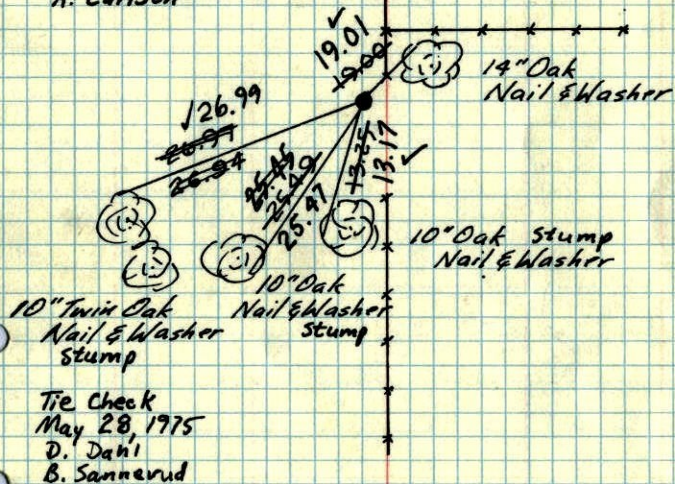 A. Carlson
✓
19.01
19.00
14" Oak
Nail & Washer
✓26.99
26.97
26.94
25.45
25.49
25.47
13.25
13.17 ✓
10" Oak Stump
Nail & Washer
10" Oak
Nail & Washer
Stump
10" Twin Oak
Nail & Washer
Stump
Tie Check
May 28, 1975
D. Dahl
B. Sannerud